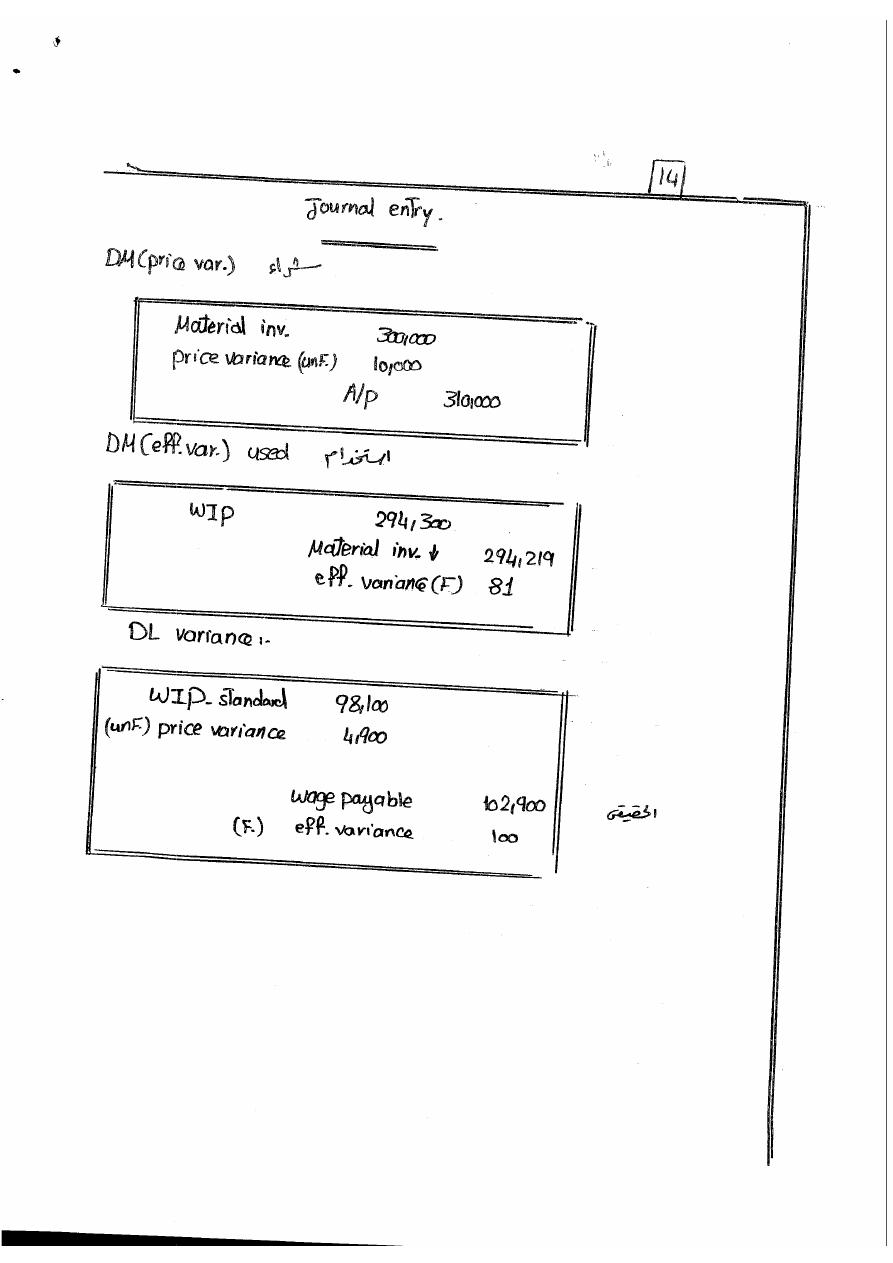 14
Journal entry.
DM (price var.) شراء
Material inv. 300,000
price variance (unF.) 10,000
A/p 310,000
DM (eff. var.) used استخدام
WIP 294,300
Material inv. ↓ 294,219
eff. variance (F.) 81
DL variance :-
WIP- standard 98,100
(unF.) price variance 4,900
wage payable 102,900 الحقيقي
(F.) eff. variance 100